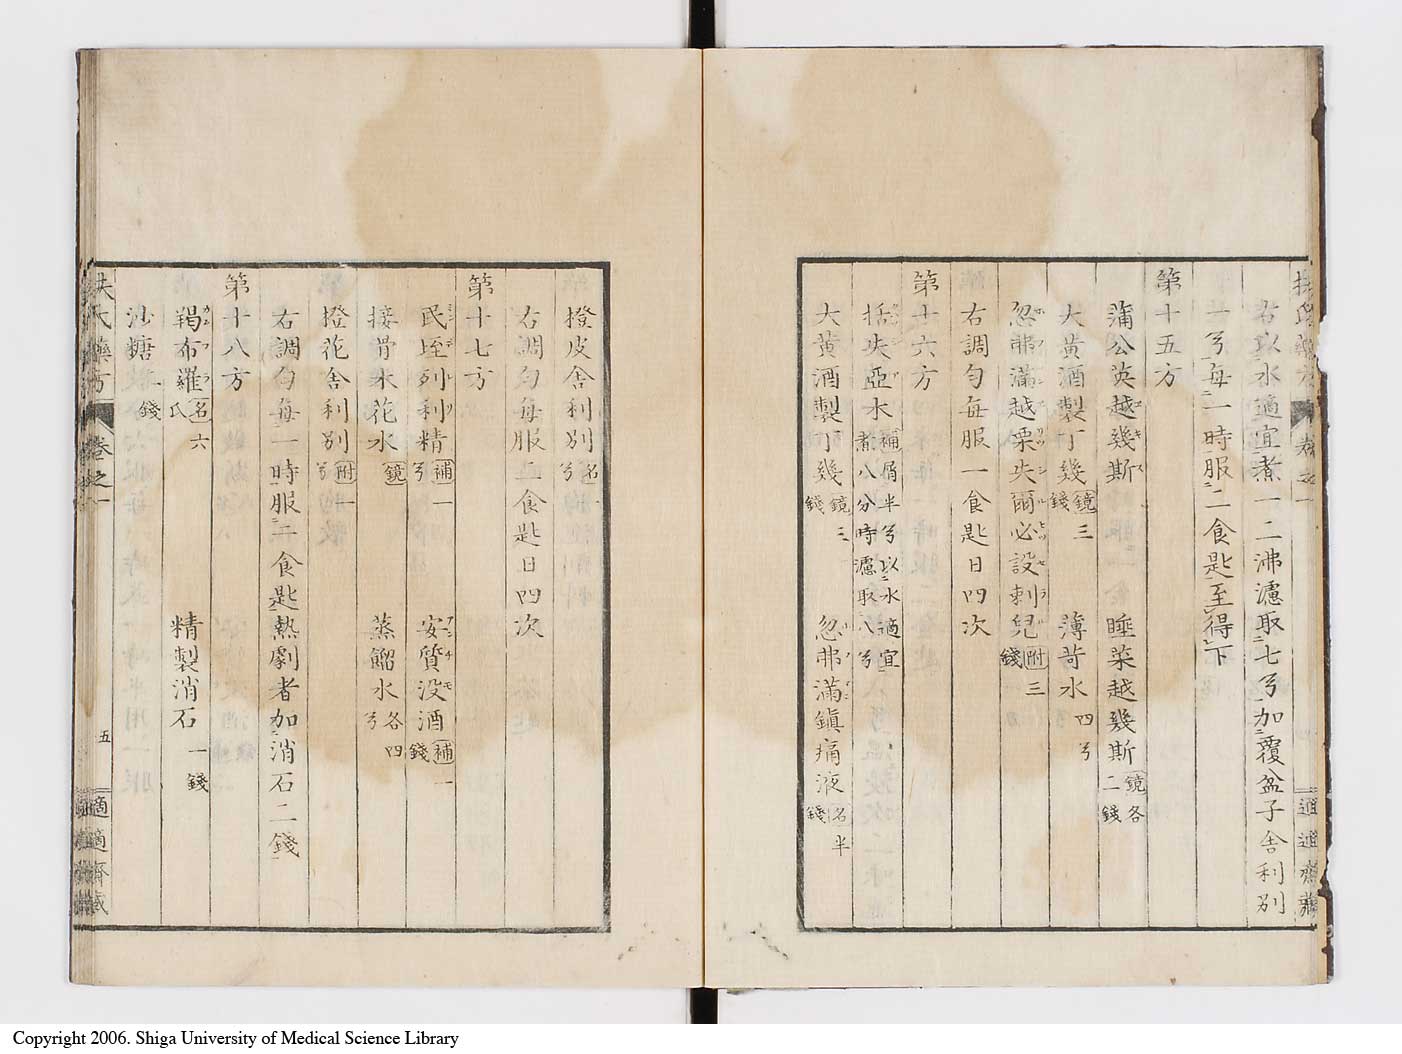 右以水適宜煮一二沸濾取七兮加覆盆子舎利別
一兮每一時服二食匙至得下
第十五方
蒲公英越幾斯 睡菜越幾斯 鏡各二錢
大黄酒製丁幾 鏡三錢 薄荷水 四兮
忽弗満越栗失爾必設剌兒 附三錢
右調匀每服一食匙日四次
第十六方
括失亞水 補屑半兮以水適宜煮八分時濾取八兮
大黄酒製丁幾 鏡三錢 忽弗満鎮痛液 名半錢
橙皮舎利別 名一兮
右調匀每服一食匙日四次
第十七方
民垤列利精 補一兮 安質没酒 補一錢
接骨木花水 鏡 蒸餾水 各四兮
橙花舎利別 附一兮
右調匀每一時服二食匙熱劇者加消石二錢
第十八方
羯布羅 名六氐 精製消石 一錢
沙糖 一錢
扶氏藥方 卷之一 五 適適齋藏
Copyright 2006. Shiga University of Medical Science Library